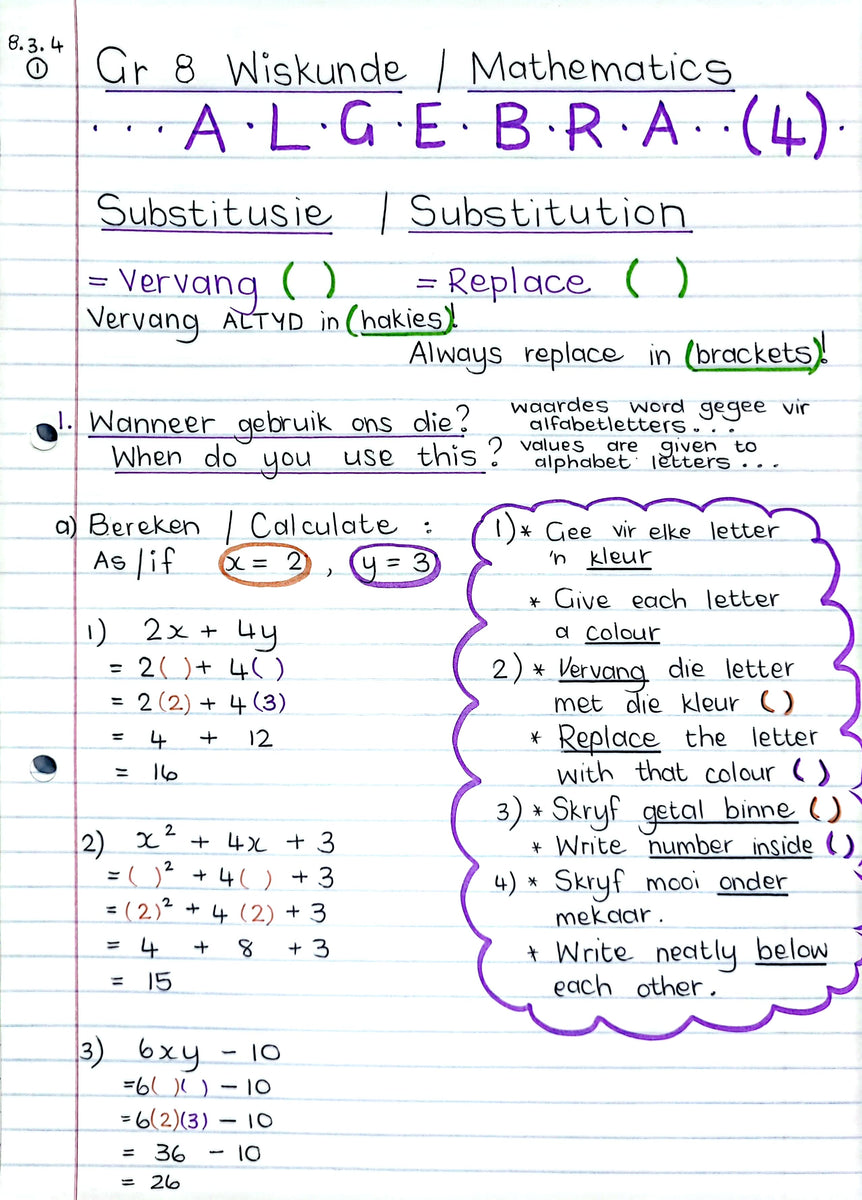 8.3.4
①
Gr 8 Wiskunde / Mathematics
...A.L.G.E.B.R.A..(4).
Substitusie / Substitution
= Vervang ( ) = Replace ( )
Vervang ALTYD in (hakies)!
Always replace in (brackets)!
1. Wanneer gebruik ons die? waardes word gegee vir
alfabetletters...
When do you use this? values are given to
alphabet letters...
a) Bereken / Calculate :
As / if x = 2 , y = 3
1) 2x + 4y
= 2( ) + 4( )
= 2(2) + 4(3)
= 4 + 12
= 16
2) x² + 4x + 3
= ( )² + 4( ) + 3
= (2)² + 4(2) + 3
= 4 + 8 + 3
= 15
3) 6xy - 10
=6( )( ) - 10
=6(2)(3) - 10
= 36 - 10
= 26
1)* Gee vir elke letter
'n kleur
* Give each letter
a colour
2)* Vervang die letter
met die kleur ( )
* Replace the letter
with that colour ( )
3)* Skryf getal binne ( )
* Write number inside ( )
4)* Skryf mooi onder
mekaar.
* Write neatly below
each other.